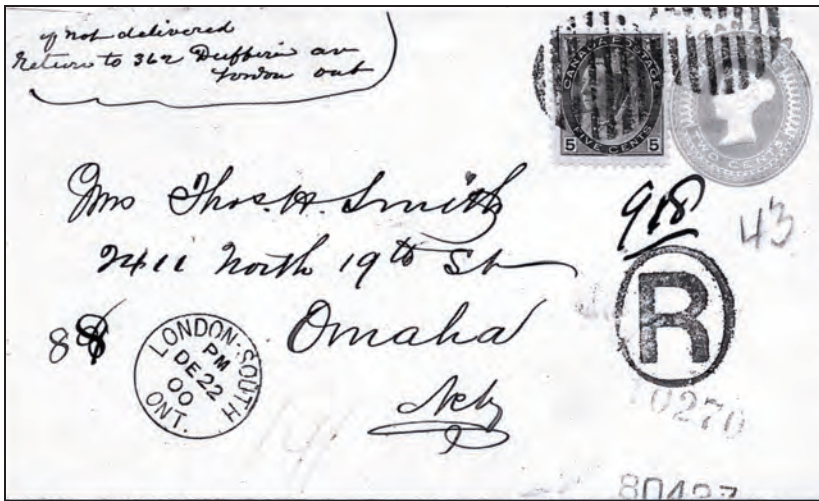 if not delivered
Return to 362 Dufferin av
London ont
CANADA POSTAGE
FIVE CENTS
5 5
TWO CENTS
Mrs Thos. H. Smith
2411 North 19th St
Omaha
Neb
918
43
R
10270
88
LONDON-SOUTH
PM
DE 22
00
ONT.
80427